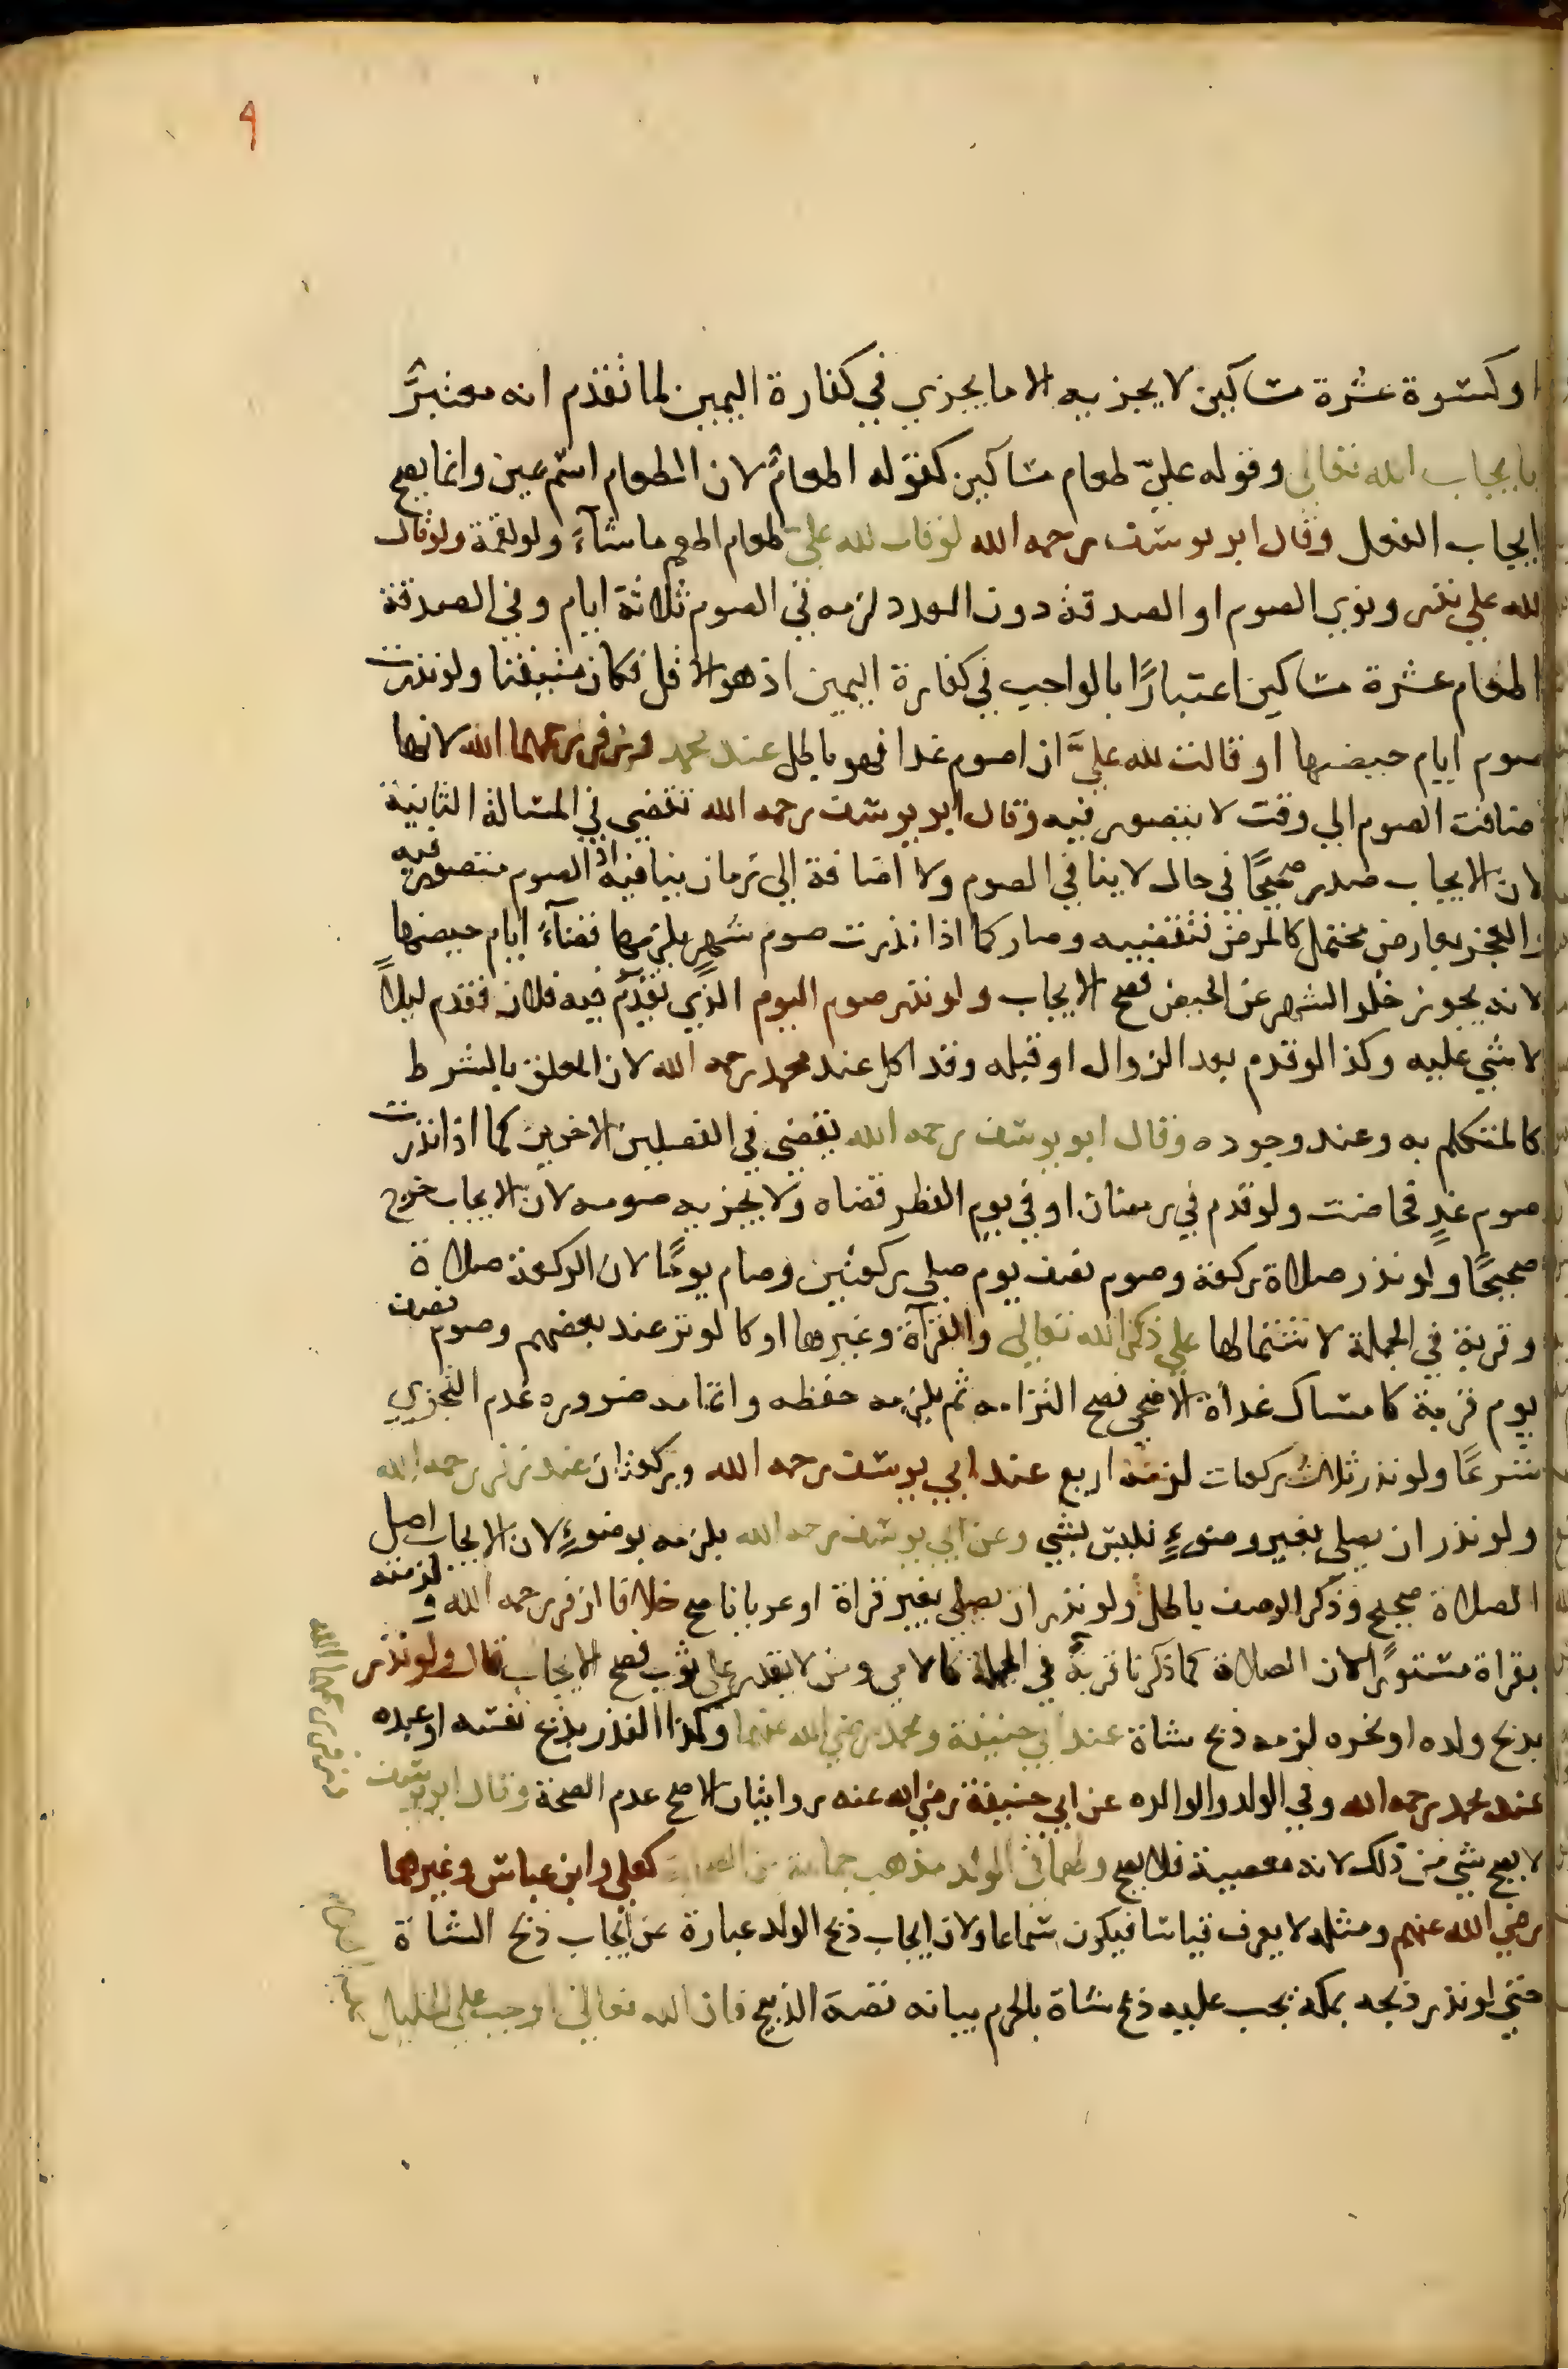 ٩
او كسوة عشرة مساكين لا يجزيه الا ما يجزي في كفارة اليمين لما تقدم انه معتبرٌ
بايجاب الله تعالى وقوله عليّ طعام مساكين كقوله اطعامٌ لان الطعام اسم عين وانما يصح
ايجاب الفعل وقال ابو يوسف رحمه الله لو قال لله عليّ طعام اطعم ما شآءَ ولو لقمة ولو قال
لله علي نذر ونوى الصوم او الصدقة دون العدد لزمه في الصوم ثلاثة ايام وفي الصدقة
اطعام عشرة مساكين اعتبارًا بالواجب في كفارة اليمين اذ هو الاقل فكان متيقنا ولو نذرت
صوم ايام حيضها او قالت لله عليَّ ان اصوم غدا فهو باطل عند محمد وزفر رحمهما الله لانها
اضافت الصوم الي وقت لا يتصور فيه وقال ابو يوسف رحمه الله تقضي في المسالة الثانية
لان الايجاب صدر صحيحًا في حال لا ينافي الصوم ولا اضافة الي زمان ينافيه اذ الصوم متصور فيه
والعجز بعارض محتمل كالمرض فتقضيه وصار كما اذا نذرت صوم شهرٍ يلزمها قضآءُ ايام حيضها
لانه يجوز خلو الشهر عن الحيض فصح الايجاب ولو نذر صوم اليوم الذي يقدم فيه فلان فقدم ليلاً
لا شي عليه وكذا لو قدم بعد الزوال او قبله وقد اكل عند محمد رحمه الله لان المعلق بالشرط
كالمتكلم به وعند وجوده وقال ابو يوسف رحمه الله يقضي في الفصلين الاخرين كما اذا نذرت
صوم غدٍ فحاضت ولو قدم في رمضان او في يوم الفطر قضاه ولا يجزيه صومه لان الايجاب خرج
صحيحًا ولو نذر صلاة ركعة وصوم نصف يوم صلي ركعتين وصام يومًا لان الركعة صلاة
وقربة في الجملة لاشتمالها علي ذكر الله تعالى والقرآة وغيرها او كالوتر عند بعضهم وصوم نصف
يوم قربة كامساك غداة الاضحى فصح التزامه ثم يلزمه حفظه واتمامه ضرورة عدم التجزي
شرعًا ولو نذر ثلاث ركعات لزمته اربع عند ابي يوسف رحمه الله وركعتان عند زفر رحمه الله
ولو نذر ان يصلي بغير وضوءٍ فليس بشي وعن ابي يوسف رحمه الله يلزمه بوضوءٍ لان الايجاب اصل
الصلاة صحيح وذكر الوصف باطل ولو نذر ان يصلي بغير قراة او عريانا صح خلافا لزفر رحمه الله ولزمته
بقراة مستورًا لان الصلاة كما ذكرنا قربةً في الجملة كالامي ومن لا يقدر على ثوب فصح الايجاب قال ولو نذر
بذبح ولده او نحره لزمه ذبح شاة عند ابي حنيفة ومحمد رضي الله عنهما وكذا النذر بذبح نفسه او عبده
عند محمد رحمه الله وفي الولد والوالده عن ابي حنيفة رضي الله عنه روايتان الاصح عدم الصحة وقال ابو يوسف
وزفر رحمهما الله
لا يصح شي من ذلك لانه معصية فلا يصح ولهما في الولد مذهب جماعة من الصحابة كعلي وابن عباس وغيرهما
رضي الله عنهم ومثله لا يعرف قياسا فيكون سماعا ولان ايجاب ذبح الولد عبارة عن ايجاب ذبح الشاة
حتى لو نذر ذبحه بمكة يجب عليه ذبح شاة بالحرم بيانه قصة الذبيح فان الله تعالى اوجب على الخليل